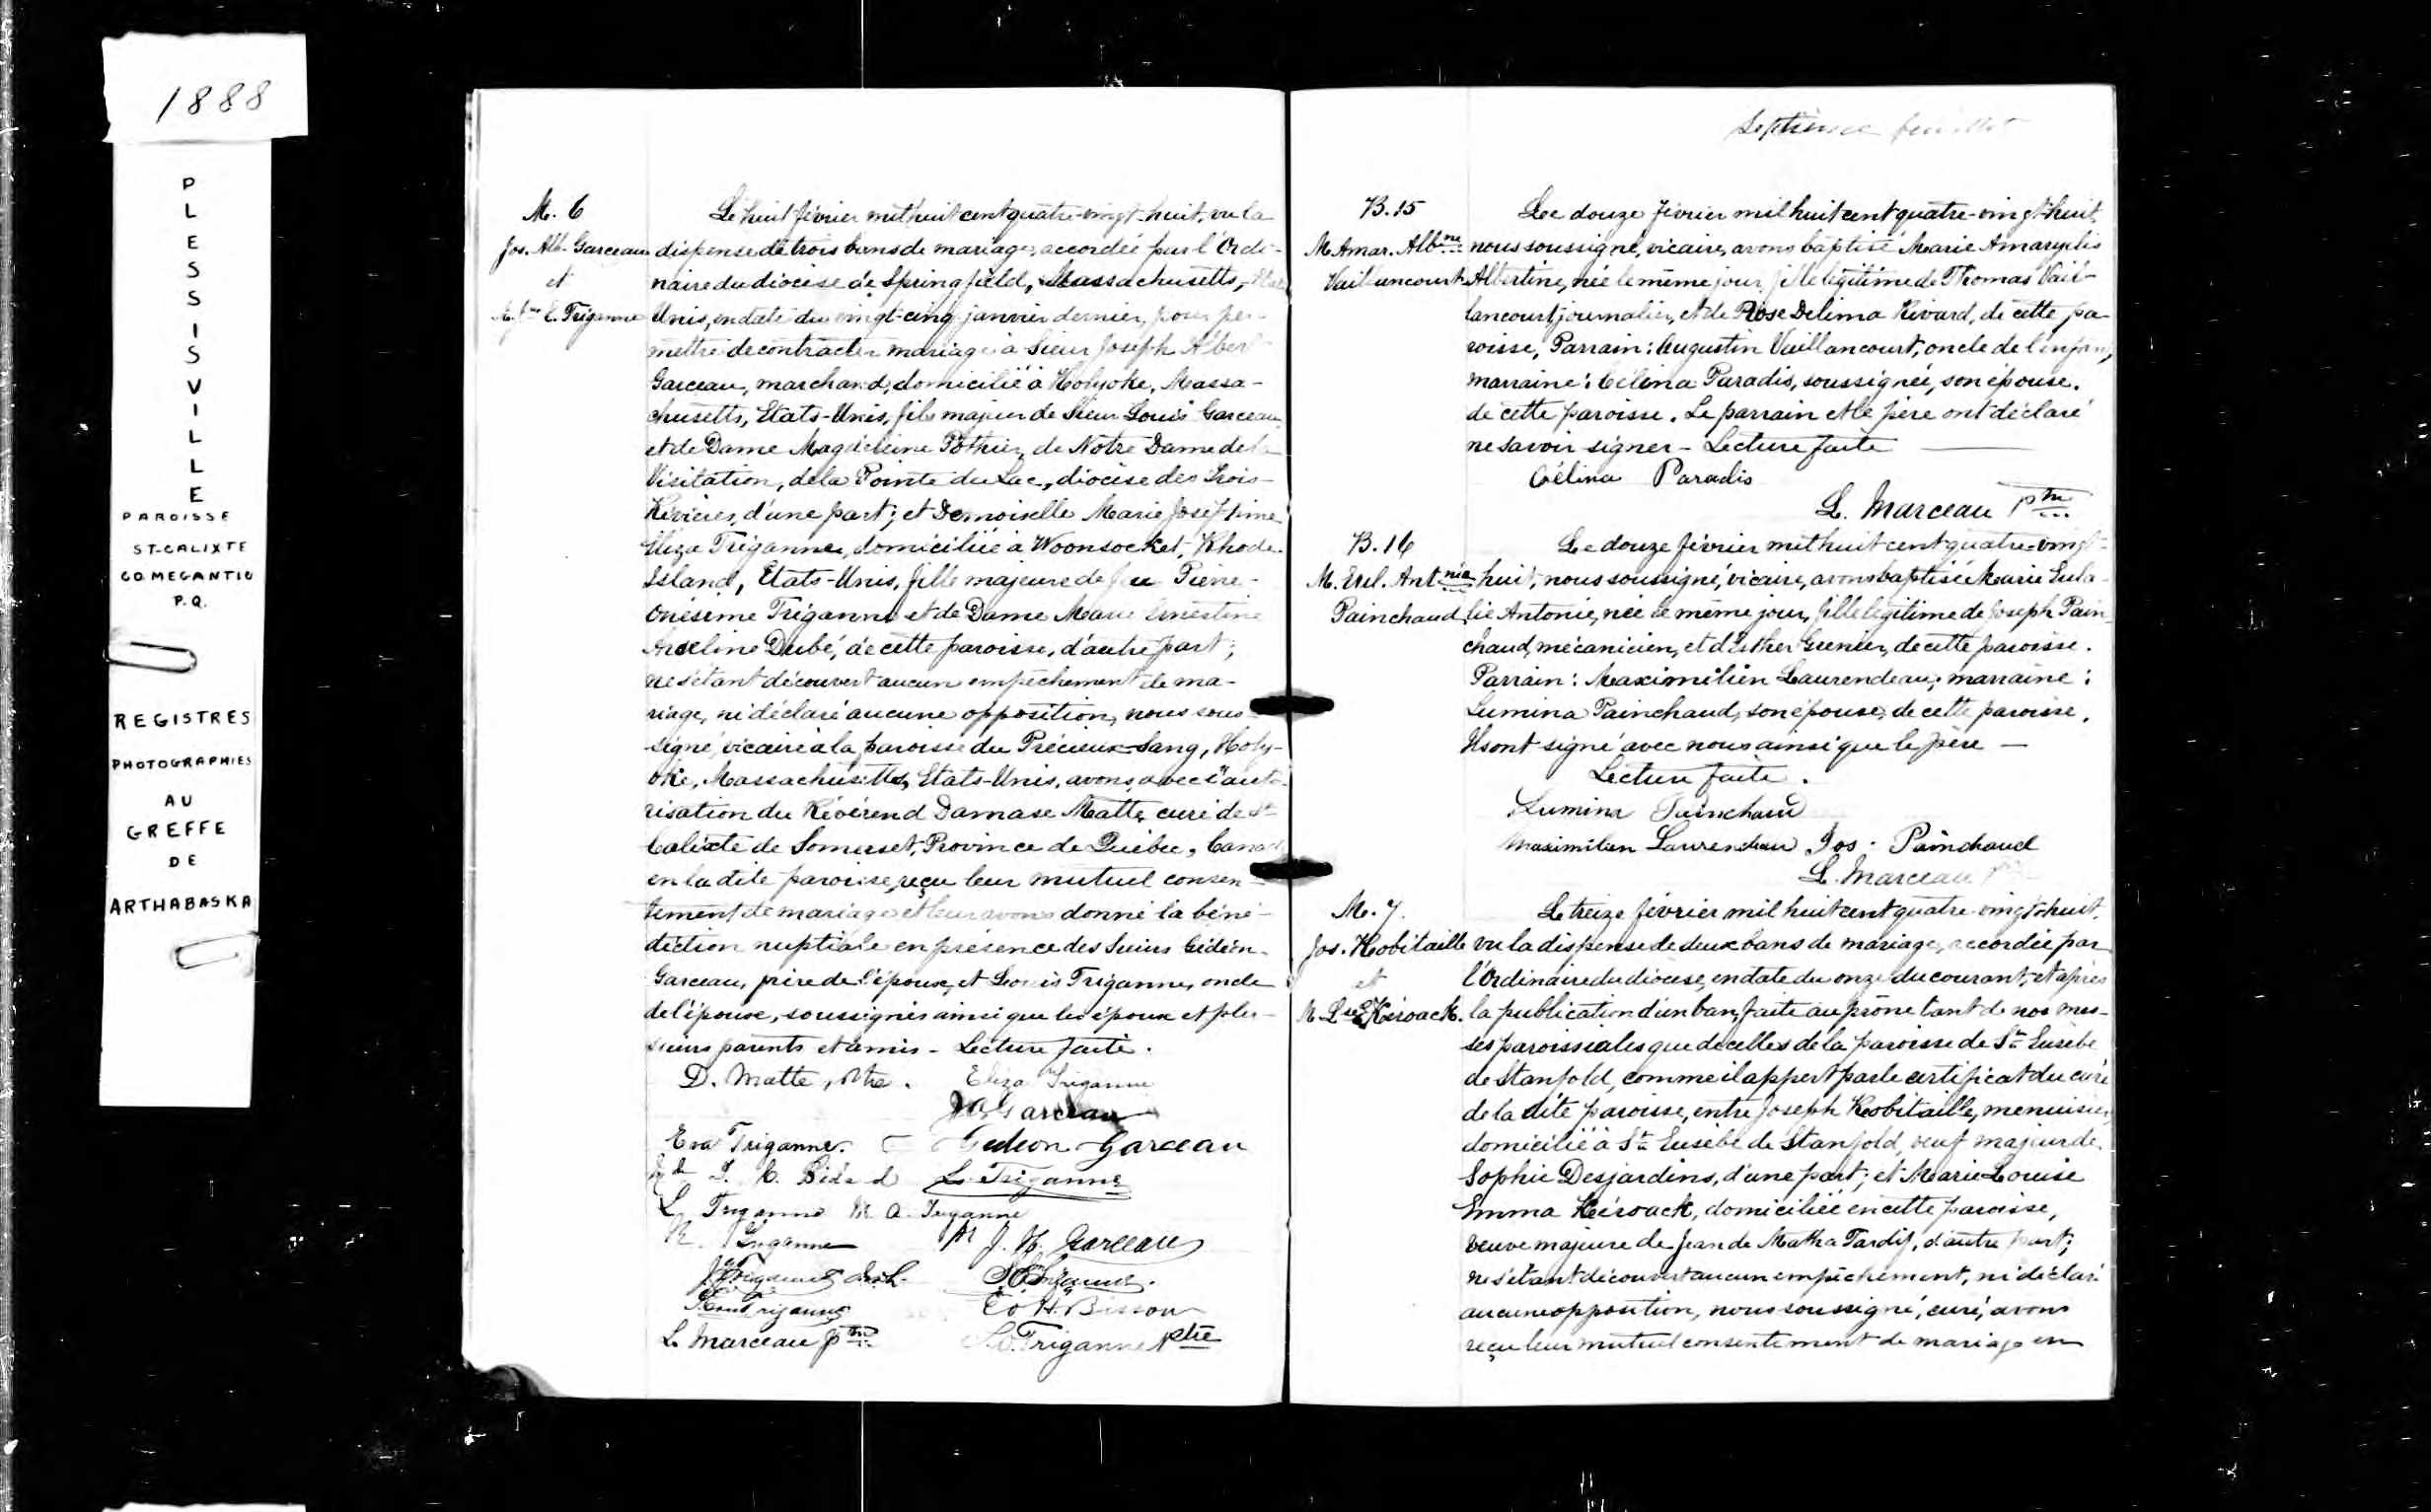 1888
PLESSISVILLE
PAROISSE
ST-CALIXTE
CO. MEGANTIC
P.Q.
REGISTRES
PHOTOGRAPHIES
AU
GREFFE
DE
ARTHABASKA
M. 6
Jos. Alb. Garceau
et
M. Jne E. Triganne
Le huit février mil huit cent quatre-vingt-huit, vu la
dispense de trois bans de mariage, accordée par l'Ordi-
naire du diocèse de Springfield, Massachusetts, Etats
Unis, en date du vingt-cinq janvier dernier, pour per-
mettre de contracter mariage à Sieur Joseph Albert
Garceau, marchand, domicilié à Holyoke, Massa-
chusetts, Etats-Unis, fils majeur de Sieur Louis Garceau
et de Dame Magdeleine Pothier, de Notre Dame de la
Visitation, de la Pointe du Lac, diocèse des Trois-
Rivières, d'une part; et Demoiselle Marie Joséphine
Eliza Triganne, domiciliée à Woonsocket, Rhode-
Island, Etats-Unis, fille majeure de feu Pierre-
Onésime Triganne et de Dame Marie Ernestine
Anceline Dubé, de cette paroisse, d'autre part;
ne s'étant découvert aucun empêchement de ma-
riage, ni déclaré aucune opposition, nous sous-
signé, vicaire à la paroisse du Précieux-Sang, Holy-
oke, Massachusetts, Etats-Unis, avons, avec l'auto-
risation du Révérend Damase Matte, curé de St
Calixte de Somerset, Province de Québec, Canada
en la dite paroisse, reçu leur mutuel consen-
tement de mariage et leur avons donné la béné-
diction nuptiale en présence des Sieurs Gédéon-
Garceau, frère de l'époux, et Louis Triganne, oncle
de l'épouse, soussignés ainsi que les époux et plu-
sieurs parents et amis - Lecture faite.
D. Matte, Ptre. Eliza Triganne
J A Garceau
Eva Triganne. Gedeon Garceau
J. C. Bédard L. Triganne
L. Triganne M. A. Triganne
R. Triganne J. H. Garceau
Triganne
Triganne Ed H. Bisson
L. Marceau Ptre Triganne Ptre
Septième feuillet
B. 15
M. Amar. Albne
Vaillancourt
Le douze février mil huit cent quatre-vingt-huit,
nous soussigné, vicaire, avons baptisé Marie Amaryelis
Albertine, née le même jour, fille légitime de Thomas Vail-
lancourt, journalier, et de Rose Delima Rivard, de cette pa-
roisse, Parrain: Augustin Vaillancourt, oncle de l'enfant,
marraine: Célina Paradis, soussignée, son épouse.
de cette paroisse. Le parrain et le père ont déclaré
ne savoir signer - Lecture faite
Célina Paradis
L. Marceau Ptre
B. 16
M. Eul. Antnie
Painchaud
Le douze février mil huit cent quatre-vingt-
huit, nous soussigné, vicaire, avons baptisé Marie Eula-
lie Antonie, née le même jour, fille légitime de Joseph Pain-
chaud, mécanicien, et d'Esther Grenier, de cette paroisse.
Parrain: Maximilien Laurendeau; marraine:
Lumina Painchaud, son épouse, de cette paroisse.
Ils ont signé avec nous ainsi que le père -
Lecture faite.
Lumina Painchaud
Maximilien Laurendeau Jos. Painchaud
L. Marceau Ptre
M. 7.
Jos. Robitaille
et
M. Lse E. Kéroack.
Le treize février mil huit cent quatre-vingt-huit,
vu la dispense de deux bans de mariage, accordée par
l'Ordinaire du diocèse, en date du onze du courant, et après
la publication d'un ban, faite au prône tant de nos mes-
ses paroissiales que de celles de la paroisse de St Eusèbe
de Stanfold, comme il appert par le certificat du curé
de la dite paroisse, entre Joseph Robitaille, menuisier,
domicilié à St Eusèbe de Stanfold, veuf majeur de
Sophie Desjardins, d'une part; et Marie Louise
Emma Kéroack, domiciliée en cette paroisse,
veuve majeure de Jean de Matha Tardif, d'autre part;
ne s'étant découvert aucun empêchement, ni déclaré
aucune opposition, nous soussigné, curé, avons
reçu leur mutuel consentement de mariage en